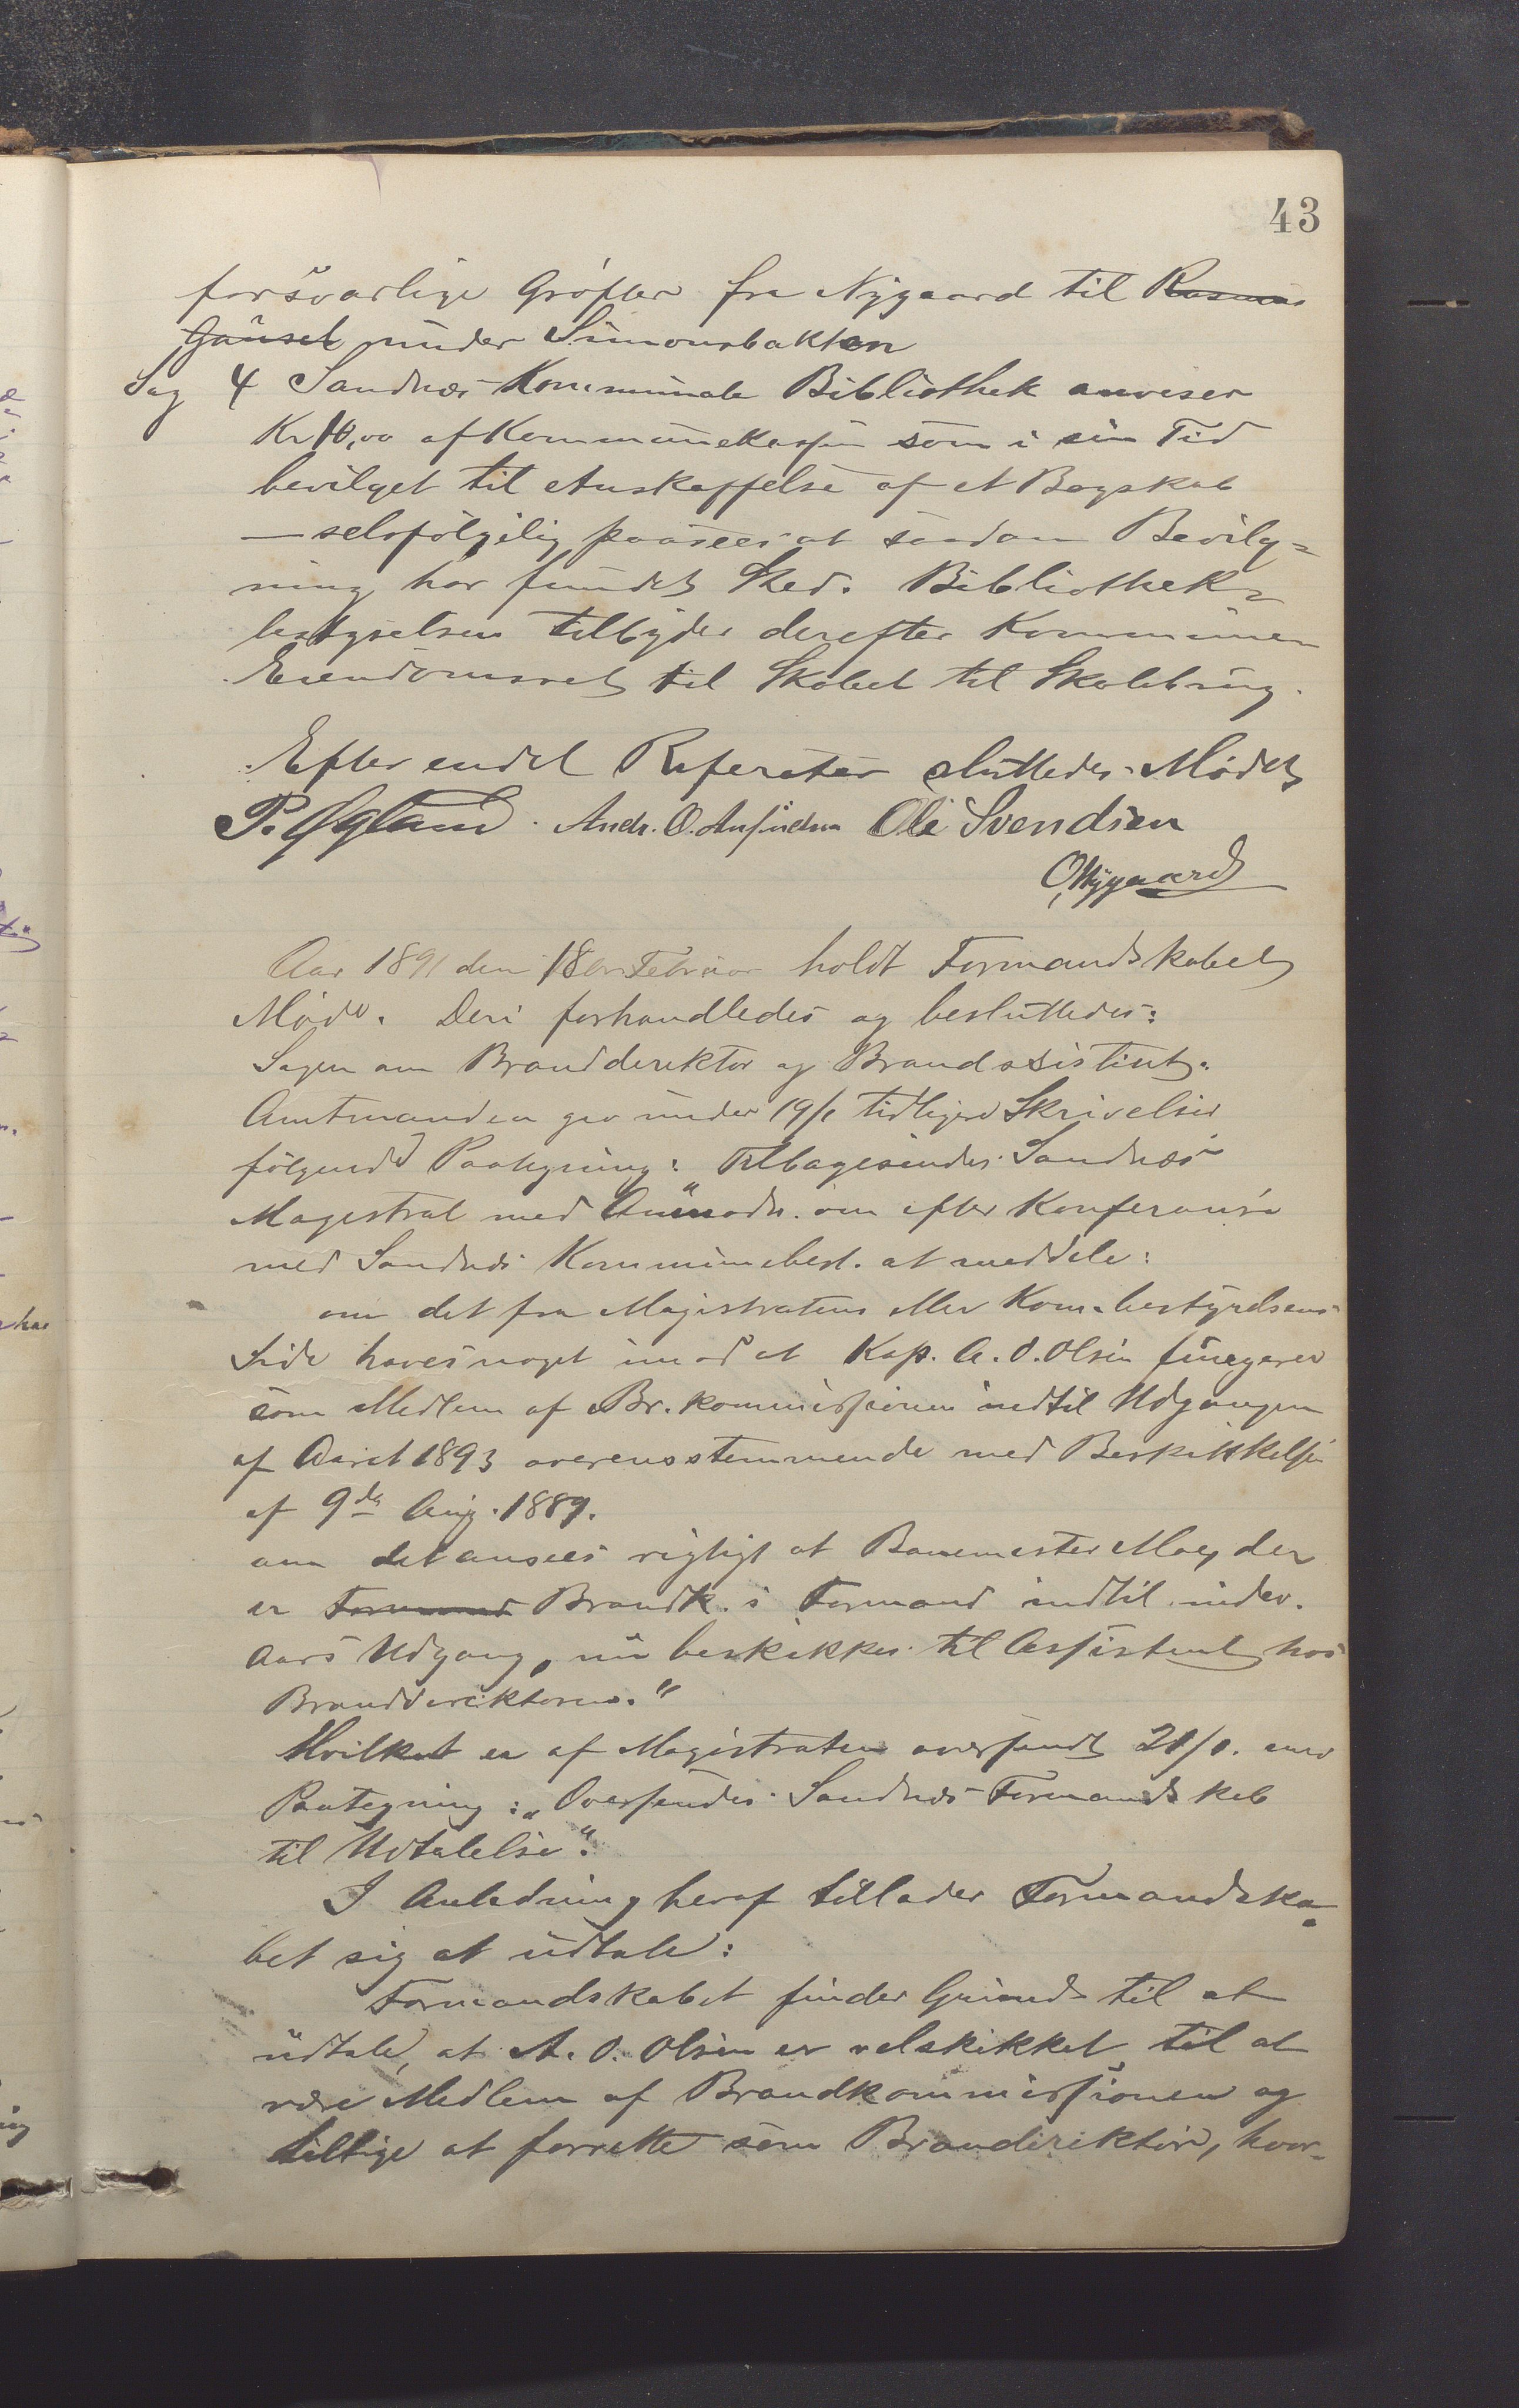 43
forsvarlige Grøfter fra Nygaard til Rasmus
Gausel under Simonsbakken
Sag 4 Sandnæs Kommunale Bibliothek anviser
Kr 10,00 af Kommunekassen som i sin Tid
bevilget til Anskaffelse af et Bogskab
— selvfølgelig paasees at saadan Bevilg=
ning har fundet Sted. Bibliothek=
bestyrelsen tilbyder derefter Kommunen
Eiendomsret til Skabet til Skolebrug.
Efter endel Referater sluttedes Mødet
P. Øgland. Andr. O. Anfindsen Ole Svendsen
O, Nygaard
Aar 1891 den 18de Februar holdt Formandskabet
Møde. Deri forhandledes og besluttedes:
Sagen om Branddirektør og Brandassistent.
Amtmanden gav under 19/1 tidligere Skrivelse
følgende Paategning: "Tilbagesendes Sandnæs
Magistrat med Anmodn. om efter Konferanse
med Sandnæs Kommunebest. at meddele:
om det fra Magistratens eller Kom.bestyrelsens
Side haves noget imod at Kap. A. O. Olsen fungerer
som Medlem af Br.kommissionen indtil Udgangen
af Aaret 1893 overensstemmende med Beskikkelse
af 9de Aug. 1889.
om det ansees rigtigt at Banemester Moe, der
er Formand Brandk.s Formand indtil indev.
Aars Udgang, nu beskikkes til Assistent hos
Branddirektøren."
Hvilket er af Magistraten oversendt 21/1. med
Paategning: "Oversendes Sandnæs Formandskab
til Udtalelse".
I Anledning heraf tillader Formandska=
bet sig at udtale:
Formandskabet finder Grund til at
udtale, at A. O. Olsen er velskikket til at
være Medlem af Brandkommissionen og
tillige at forrette som Brandirektør, hvor=